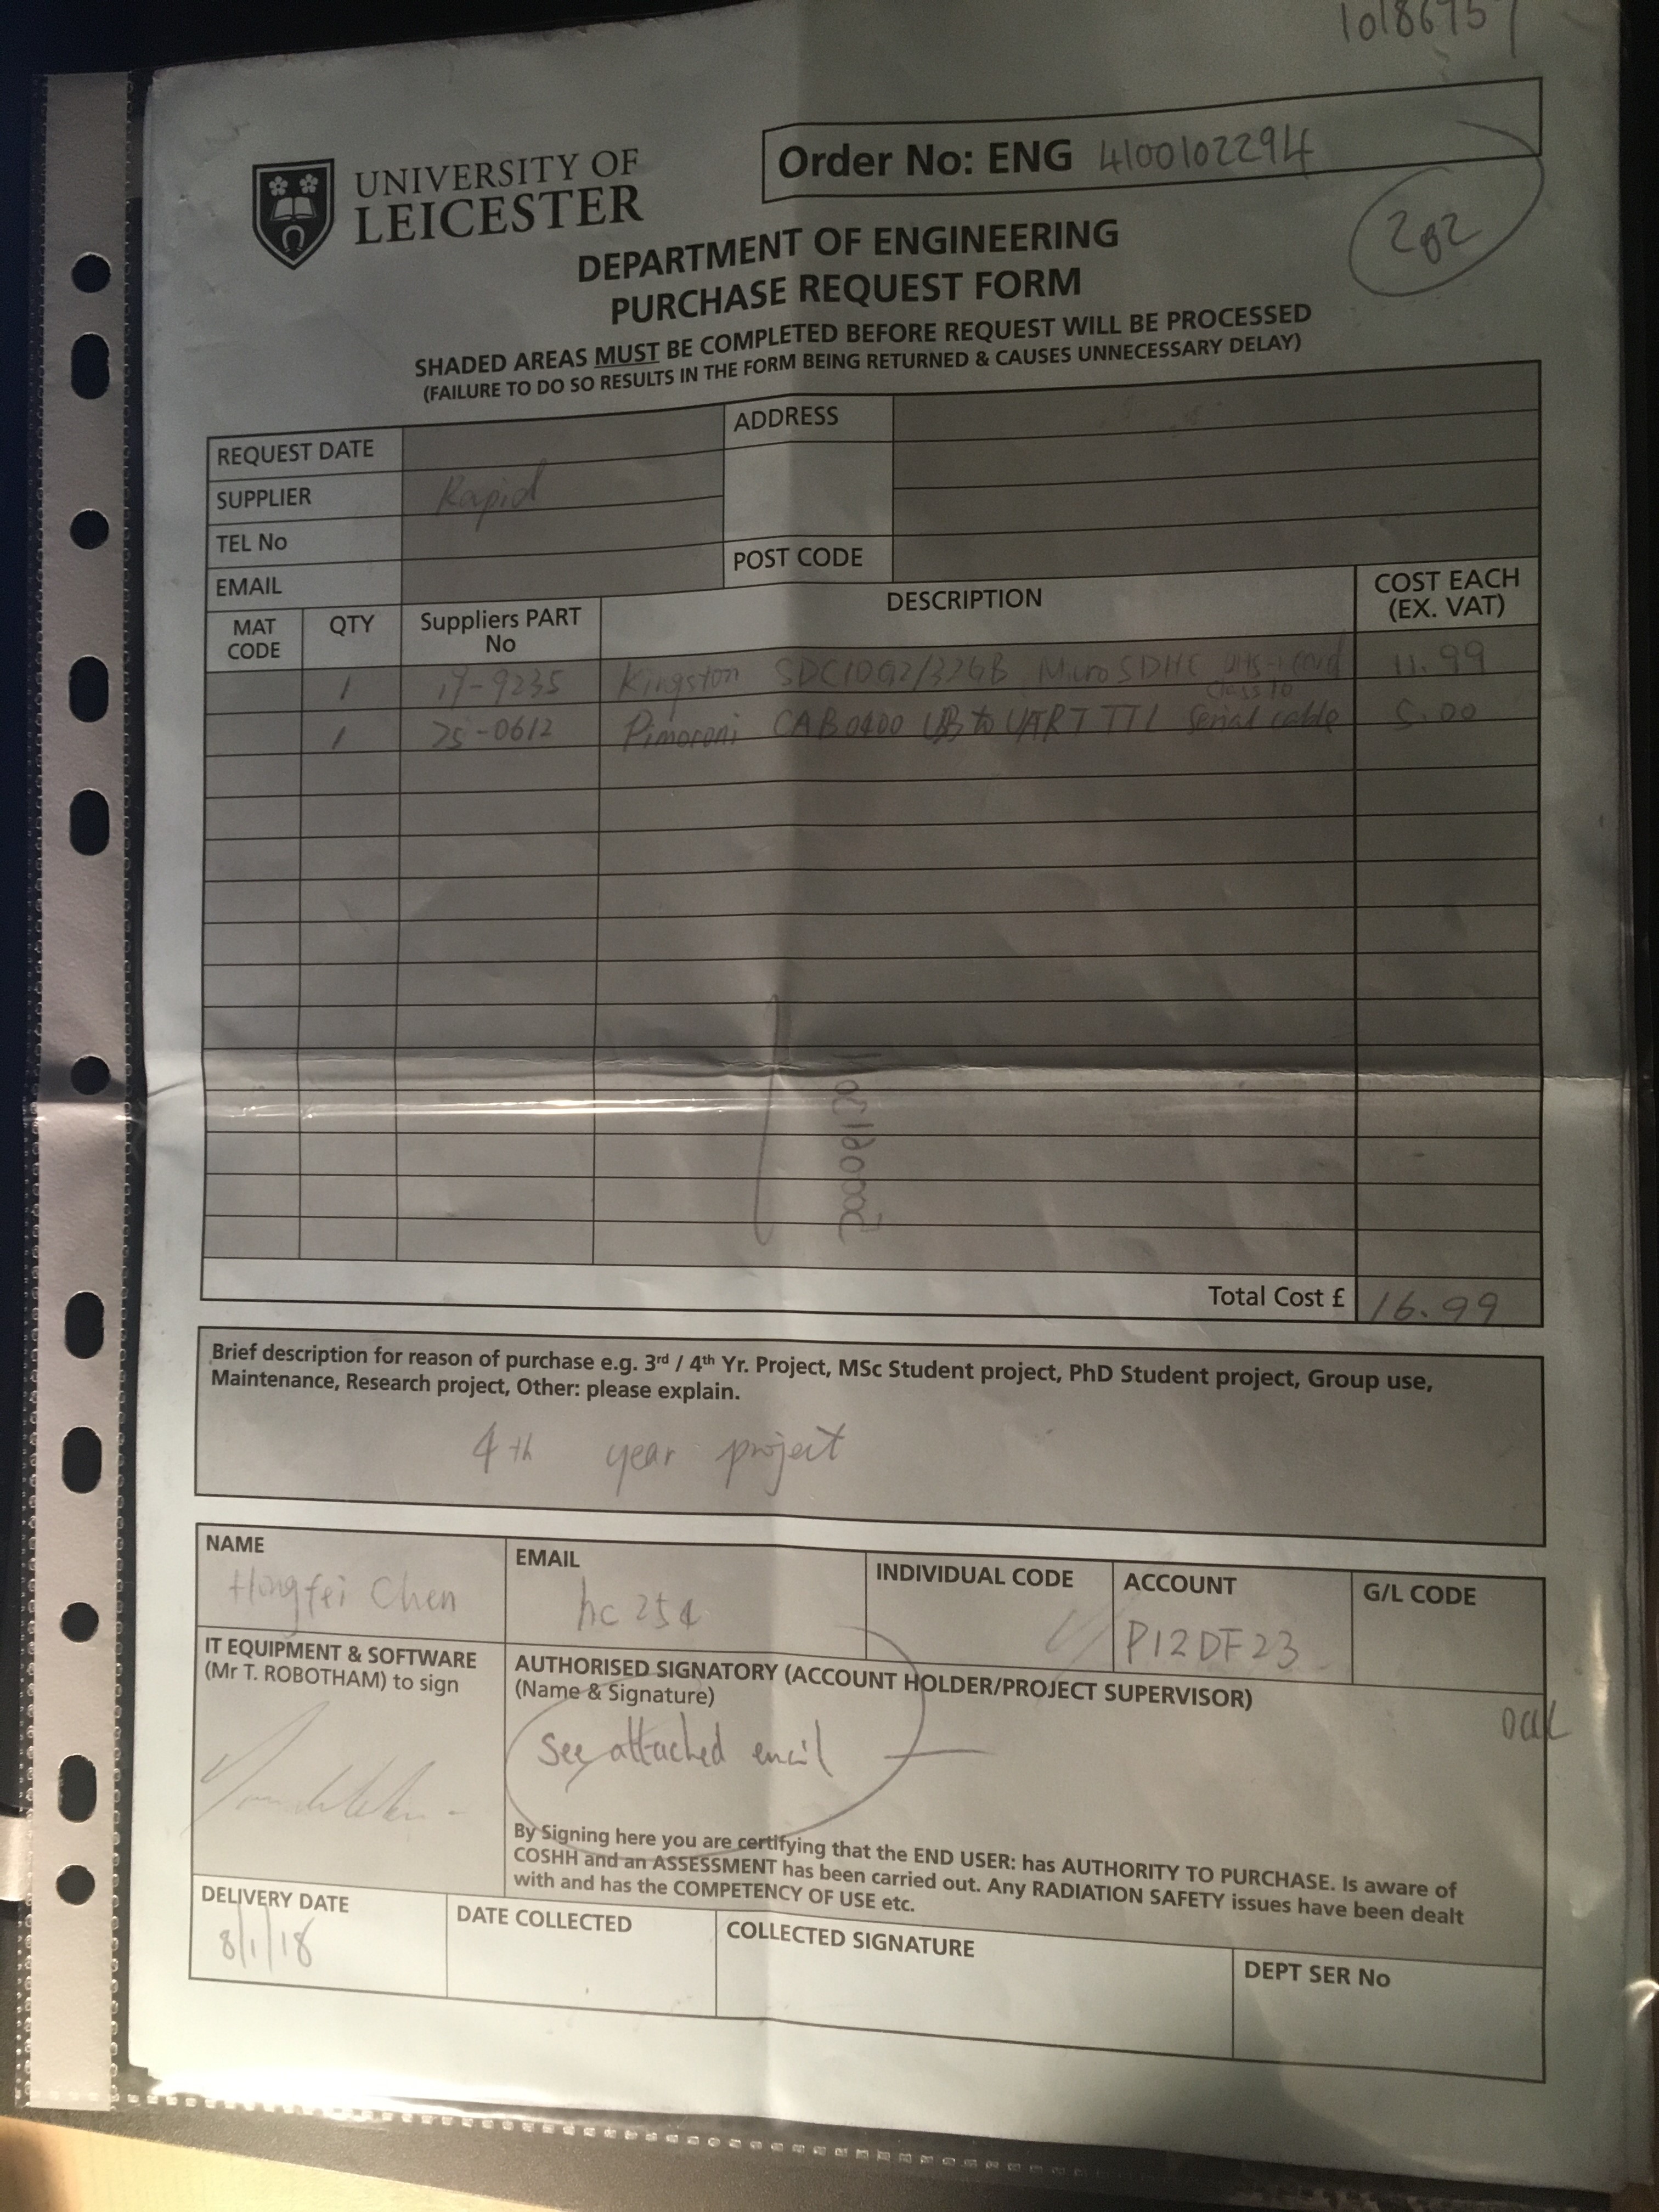 UNIVERSITY OF
LEICESTER
Order No: ENG 4100102294
DEPARTMENT OF ENGINEERING
PURCHASE REQUEST FORM
SHADED AREAS MUST BE COMPLETED BEFORE REQUEST WILL BE PROCESSED
(FAILURE TO DO SO RESULTS IN THE FORM BEING RETURNED & CAUSES UNNECESSARY DELAY)
REQUEST DATE
ADDRESS
SUPPLIER Rapid
TEL No
EMAIL
POST CODE
MAT CODE QTY Suppliers PART No DESCRIPTION COST EACH (EX. VAT)
1 19-9235 Kingston SDC10G2/32GB MicroSDHC UHS-1 Card Class 10 11.99
1 75-0612 Pimoroni CAB0400 USB to UART TTL Serial cable 5.00
Total Cost £ 16.99
Brief description for reason of purchase e.g. 3rd / 4th Yr. Project, MSc Student project, PhD Student project, Group use,
Maintenance, Research project, Other: please explain.
4th year project
NAME EMAIL INDIVIDUAL CODE ACCOUNT G/L CODE
Hongfei Chen hc254 P12DF23
IT EQUIPMENT & SOFTWARE
(Mr T. ROBOTHAM) to sign
AUTHORISED SIGNATORY (ACCOUNT HOLDER/PROJECT SUPERVISOR)
(Name & Signature)
See attached email
By Signing here you are certifying that the END USER: has AUTHORITY TO PURCHASE. Is aware of
COSHH and an ASSESSMENT has been carried out. Any RADIATION SAFETY issues have been dealt
with and has the COMPETENCY OF USE etc.
DELIVERY DATE DATE COLLECTED COLLECTED SIGNATURE DEPT SER No
8/1/18